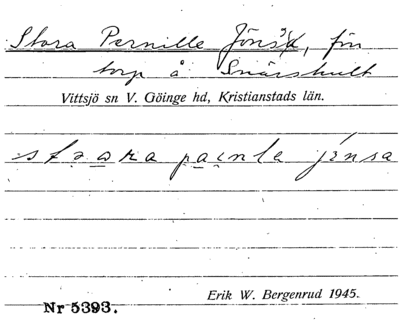 Stora Pernille Jöns's, fin
torp å Snärshult
Vittsjö sn V. Göinge hd, Kristianstads län.
stora pacnla jensa
Erik W. Bergenrud 1945.
Nr 5393.